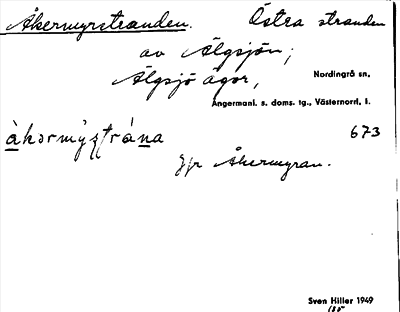 Åkermyrstranden. Östra stranden
av Älgsjön;
Älgsjö ägor, Nordingrå sn,
Ångermanl. s. doms. tg., Västernorrl. l.
673
Jfr Åkermyran.
Sven Hiller 1949